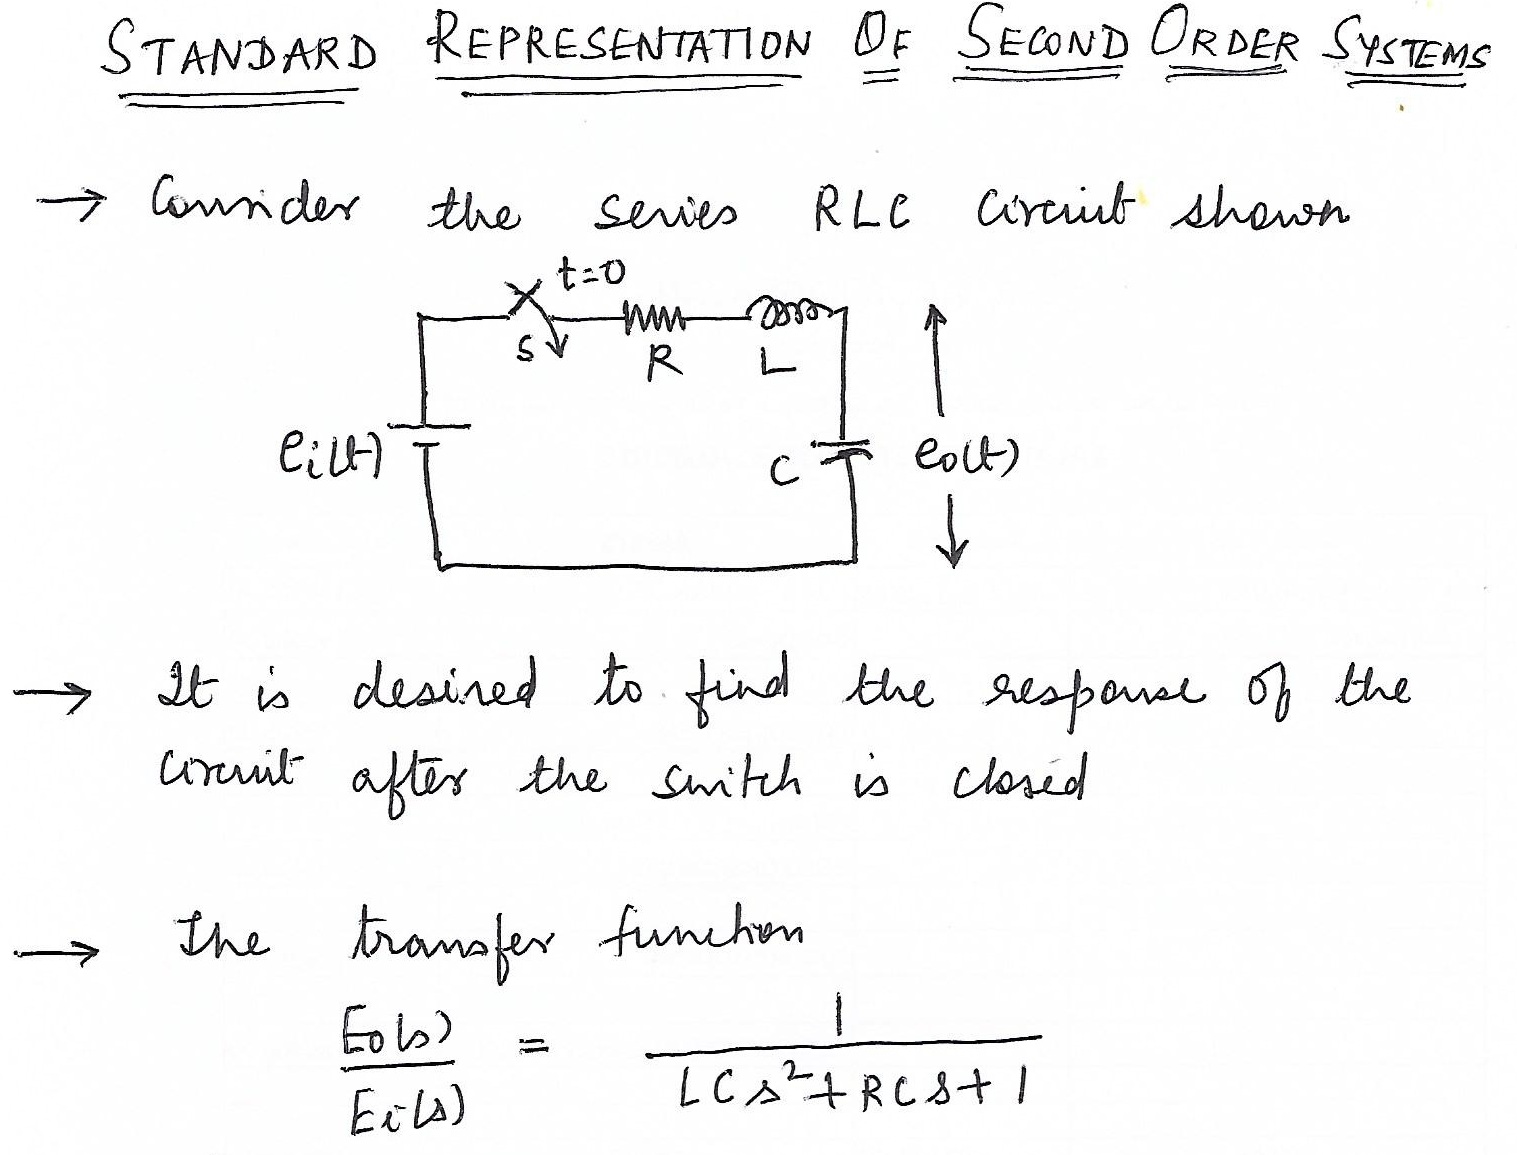 STANDARD REPRESENTATION OF SECOND ORDER SYSTEMS
→ Consider the series RLC circuit shown
t=0
S
R
L
ei(t)
C
eo(t)
→ It is desired to find the response of the
circuit after the switch is closed
→ The transfer function
Eo(s)
Ei(s)
=
1
LCs²+RCs+1